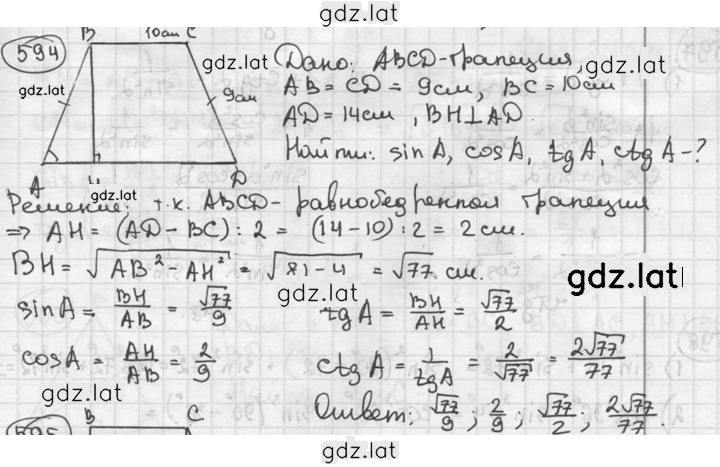 gdz.lat
594
B 10см C
gdz.lat
gdz.lat
9см
A H D
gdz.lat
Дано: ABCD-трапеция,
AB = CD = 9см, BC = 10см
gdz.lat
AD = 14см, BH⊥AD.
Найти: sin A, cos A, tg A, ctg A-?
Решение: т.к. ABCD- равнобедренная трапеция
⇒ AH = (AD - BC) : 2 = (14 - 10) : 2 = 2 см.
BH = √(AB² - AH²) = √(81 - 4) = √77 см.
gdz.lat
gdz.lat
sin A = BH/AB = √77/9 tg A = BH/AH = √77/2
cos A = AH/AB = 2/9 ctg A = 1/tg A = 2/√77 = 2√77/77
gdz.lat
Ответ: √77/9; 2/9; √77/2; 2√77/77.
595 B C
gdz.lat